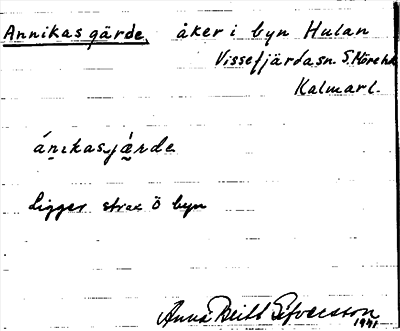 Annikas gärde, åker i byn Hulan
Vissefjärda sn. S. Möre hd
Kalmar l.
ánıkasjǽrde
Ligger strax Ö byn
Anna Britt Sifvarsson
1941